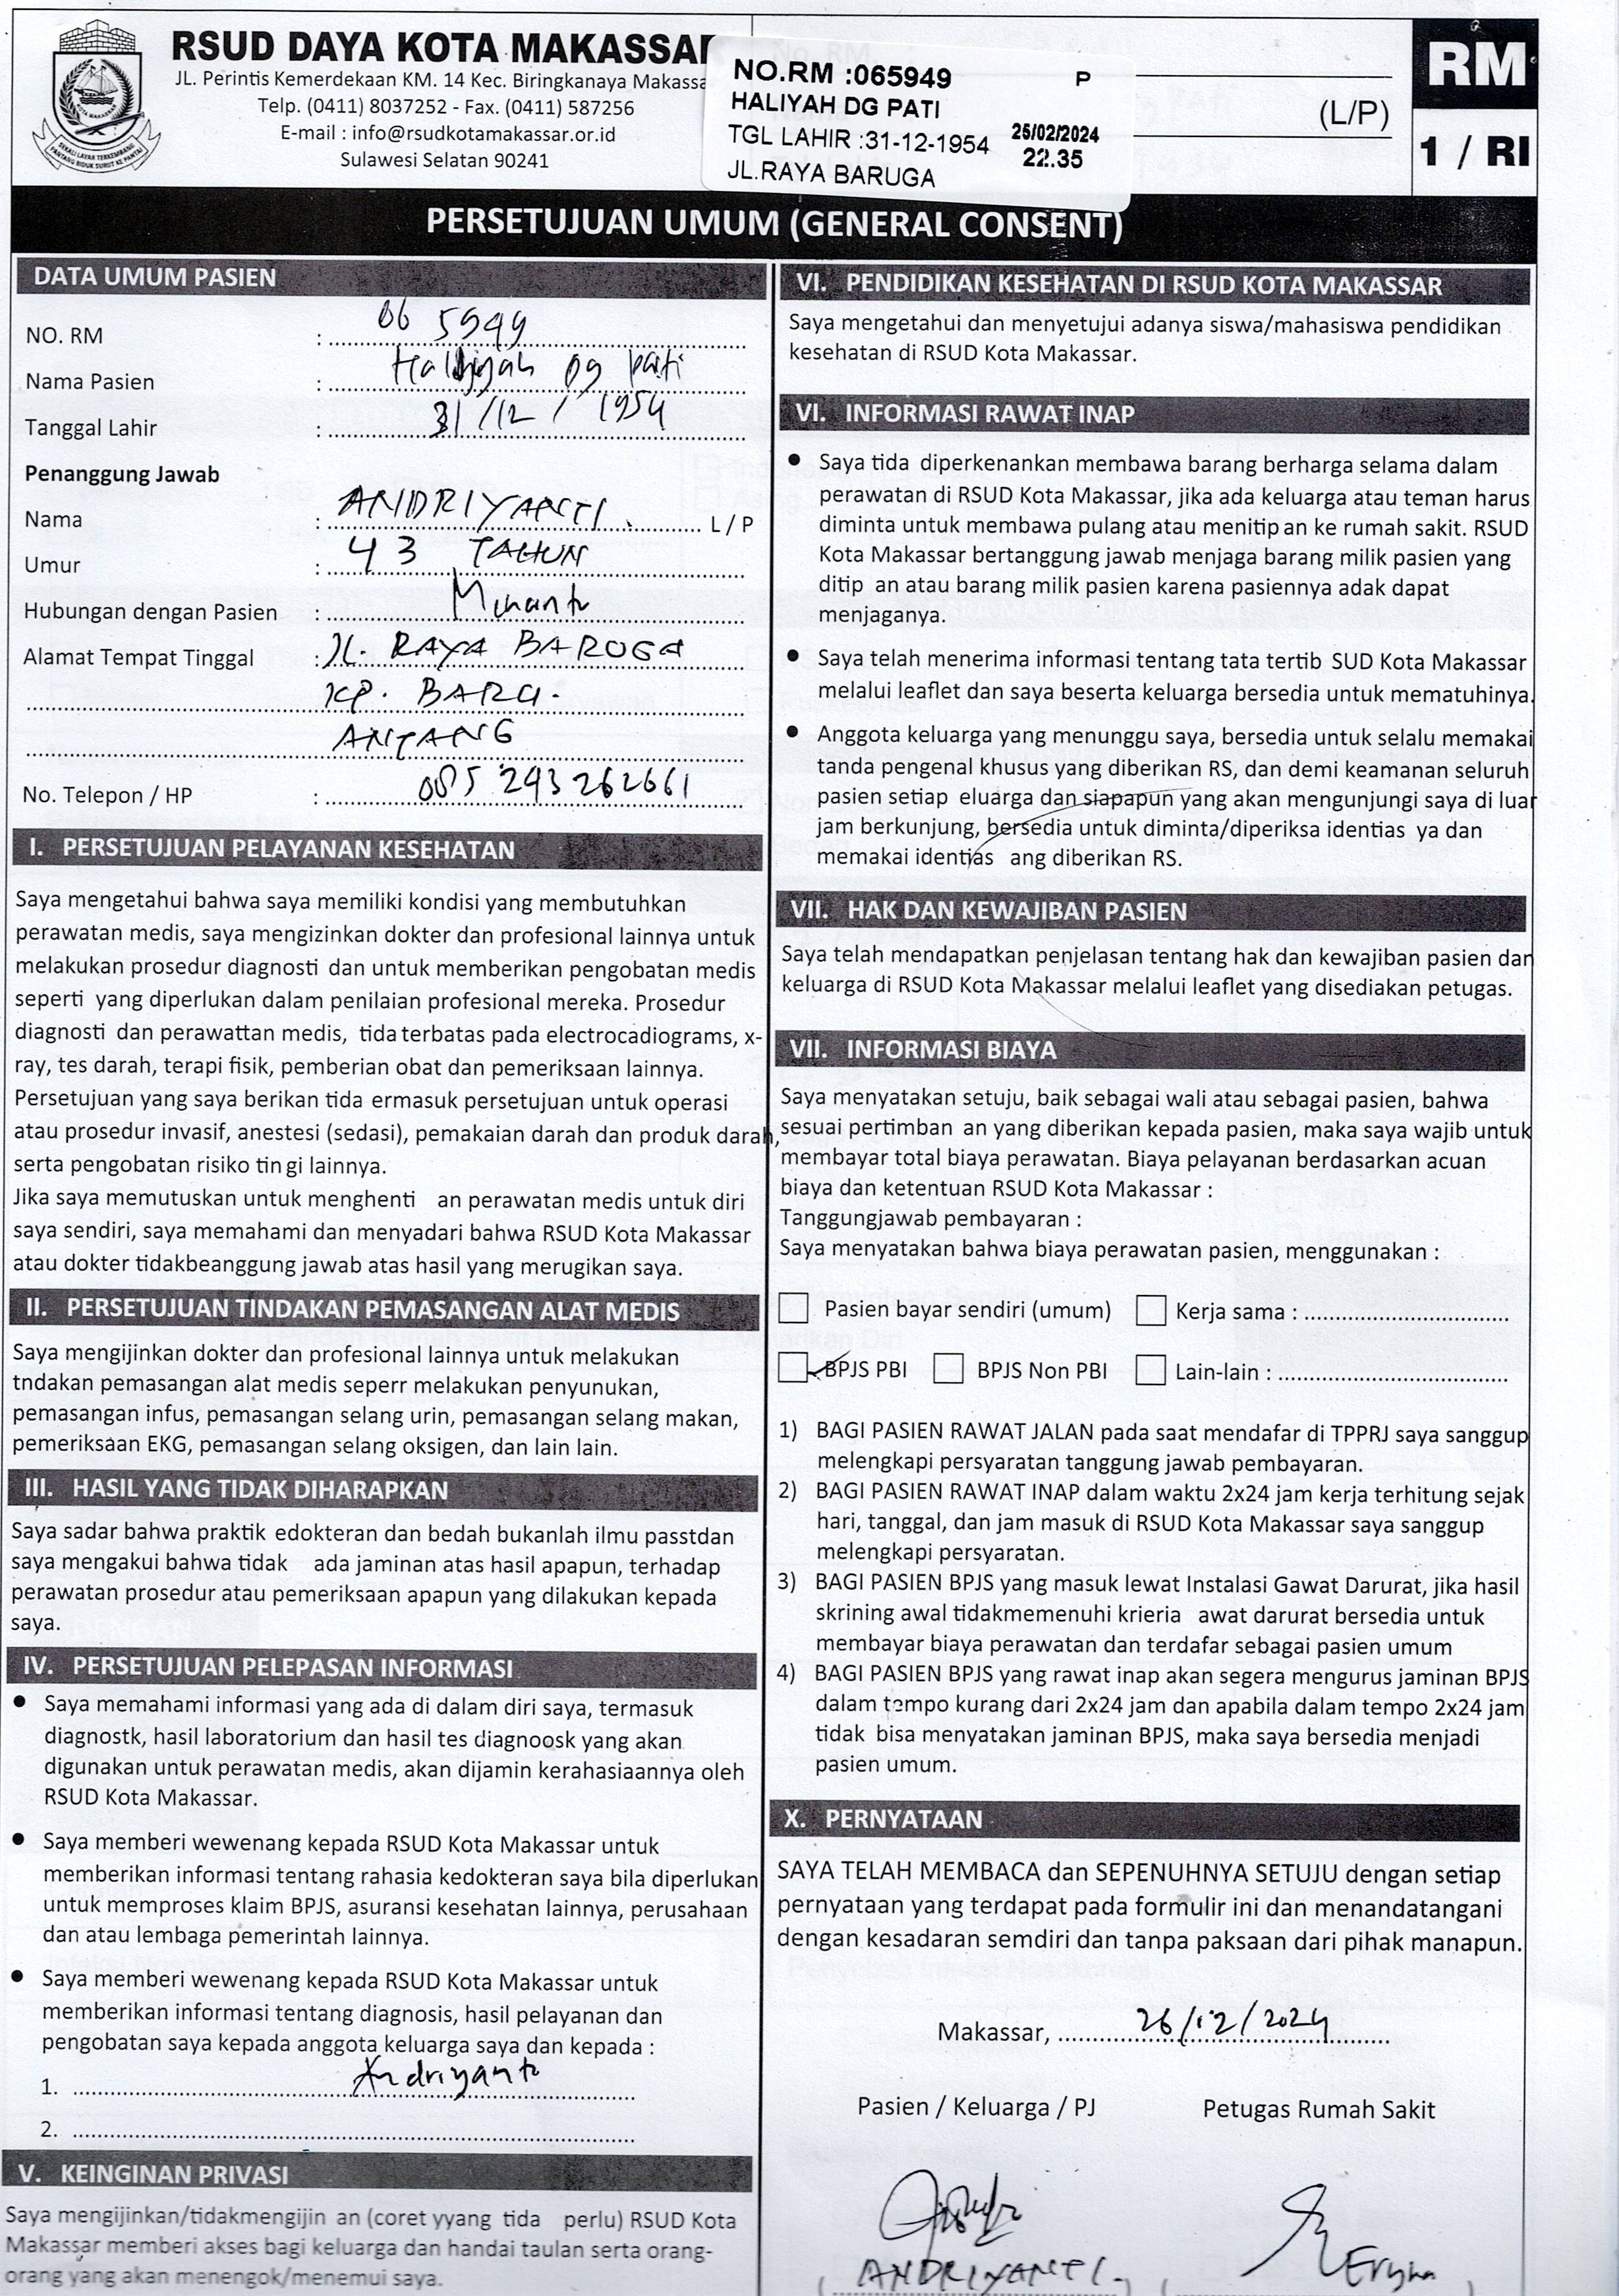 RSUD DAYA KOTA MAKASSAR
JL. Perintis Kemerdekaan KM. 14 Kec. Biringkanaya Makassa
Telp. (0411) 8037252 - Fax. (0411) 587256
E-mail : info@rsudkotamakassar.or.id
Sulawesi Selatan 90241
NO.RM :065949 P
HALIYAH DG PATI
TGL LAHIR :31-12-1954 25/02/2024
22.35
JL.RAYA BARUGA
(L/P)
RM
1 / RI
PERSETUJUAN UMUM (GENERAL CONSENT)
DATA UMUM PASIEN
NO. RM : 06 5949
Nama Pasien : Haliyah Dg pati
Tanggal Lahir : 31/12/1954
Penanggung Jawab
Nama : ANDRIYANTI. L / P
Umur : 43 TAHUN
Hubungan dengan Pasien : Menantu
Alamat Tempat Tinggal : JL. RAYA BAROGA
KP. BARU.
ANTANG
No. Telepon / HP : 085 293262661
I. PERSETUJUAN PELAYANAN KESEHATAN
Saya mengetahui bahwa saya memiliki kondisi yang membutuhkan
perawatan medis, saya mengizinkan dokter dan profesional lainnya untuk
melakukan prosedur diagnosti dan untuk memberikan pengobatan medis
seperti yang diperlukan dalam penilaian profesional mereka. Prosedur
diagnosti dan perawattan medis, tida terbatas pada electrocadiograms, x-
ray, tes darah, terapi fisik, pemberian obat dan pemeriksaan lainnya.
Persetujuan yang saya berikan tida ermasuk persetujuan untuk operasi
atau prosedur invasif, anestesi (sedasi), pemakaian darah dan produk darah,
serta pengobatan risiko tin gi lainnya.
Jika saya memutuskan untuk menghenti an perawatan medis untuk diri
saya sendiri, saya memahami dan menyadari bahwa RSUD Kota Makassar
atau dokter tidakbeanggung jawab atas hasil yang merugikan saya.
II. PERSETUJUAN TINDAKAN PEMASANGAN ALAT MEDIS
Saya mengijinkan dokter dan profesional lainnya untuk melakukan
tndakan pemasangan alat medis seperr melakukan penyunukan,
pemasangan infus, pemasangan selang urin, pemasangan selang makan,
pemeriksaan EKG, pemasangan selang oksigen, dan lain lain.
III. HASIL YANG TIDAK DIHARAPKAN
Saya sadar bahwa praktik edokteran dan bedah bukanlah ilmu passtdan
saya mengakui bahwa tidak ada jaminan atas hasil apapun, terhadap
perawatan prosedur atau pemeriksaan apapun yang dilakukan kepada
saya.
IV. PERSETUJUAN PELEPASAN INFORMASI
• Saya memahami informasi yang ada di dalam diri saya, termasuk
diagnostk, hasil laboratorium dan hasil tes diagnoosk yang akan
digunakan untuk perawatan medis, akan dijamin kerahasiaannya oleh
RSUD Kota Makassar.
• Saya memberi wewenang kepada RSUD Kota Makassar untuk
memberikan informasi tentang rahasia kedokteran saya bila diperlukan
untuk memproses klaim BPJS, asuransi kesehatan lainnya, perusahaan
dan atau lembaga pemerintah lainnya.
• Saya memberi wewenang kepada RSUD Kota Makassar untuk
memberikan informasi tentang diagnosis, hasil pelayanan dan
pengobatan saya kepada anggota keluarga saya dan kepada :
1. Andriyanti
2.
V. KEINGINAN PRIVASI
Saya mengijinkan/tidakmengijin an (coret yyang tida perlu) RSUD Kota
Makassar memberi akses bagi keluarga dan handai taulan serta orang-
orang yang akan menengok/menemui saya.
VI. PENDIDIKAN KESEHATAN DI RSUD KOTA MAKASSAR
Saya mengetahui dan menyetujui adanya siswa/mahasiswa pendidikan
kesehatan di RSUD Kota Makassar.
VI. INFORMASI RAWAT INAP
• Saya tida diperkenankan membawa barang berharga selama dalam
perawatan di RSUD Kota Makassar, jika ada keluarga atau teman harus
diminta untuk membawa pulang atau menitip an ke rumah sakit. RSUD
Kota Makassar bertanggung jawab menjaga barang milik pasien yang
ditip an atau barang milik pasien karena pasiennya adak dapat
menjaganya.
• Saya telah menerima informasi tentang tata tertib SUD Kota Makassar
melalui leaflet dan saya beserta keluarga bersedia untuk mematuhinya.
• Anggota keluarga yang menunggu saya, bersedia untuk selalu memakai
tanda pengenal khusus yang diberikan RS, dan demi keamanan seluruh
pasien setiap eluarga dan siapapun yang akan mengunjungi saya di luar
jam berkunjung, bersedia untuk diminta/diperiksa identias ya dan
memakai identias ang diberikan RS.
VII. HAK DAN KEWAJIBAN PASIEN
Saya telah mendapatkan penjelasan tentang hak dan kewajiban pasien dan
keluarga di RSUD Kota Makassar melalui leaflet yang disediakan petugas.
VII. INFORMASI BIAYA
Saya menyatakan setuju, baik sebagai wali atau sebagai pasien, bahwa
sesuai pertimban an yang diberikan kepada pasien, maka saya wajib untuk
membayar total biaya perawatan. Biaya pelayanan berdasarkan acuan
biaya dan ketentuan RSUD Kota Makassar :
Tanggungjawab pembayaran :
Saya menyatakan bahwa biaya perawatan pasien, menggunakan :
Pasien bayar sendiri (umum) Kerja sama :
BPJS PBI BPJS Non PBI Lain-lain :
1) BAGI PASIEN RAWAT JALAN pada saat mendafar di TPPRJ saya sanggup
melengkapi persyaratan tanggung jawab pembayaran.
2) BAGI PASIEN RAWAT INAP dalam waktu 2x24 jam kerja terhitung sejak
hari, tanggal, dan jam masuk di RSUD Kota Makassar saya sanggup
melengkapi persyaratan.
3) BAGI PASIEN BPJS yang masuk lewat Instalasi Gawat Darurat, jika hasil
skrining awal tidakmemenuhi krieria awat darurat bersedia untuk
membayar biaya perawatan dan terdafar sebagai pasien umum
4) BAGI PASIEN BPJS yang rawat inap akan segera mengurus jaminan BPJS
dalam tempo kurang dari 2x24 jam dan apabila dalam tempo 2x24 jam
tidak bisa menyatakan jaminan BPJS, maka saya bersedia menjadi
pasien umum.
X. PERNYATAAN
SAYA TELAH MEMBACA dan SEPENUHNYA SETUJU dengan setiap
pernyataan yang terdapat pada formulir ini dan menandatangani
dengan kesadaran semdiri dan tanpa paksaan dari pihak manapun.
Makassar, 26/12/2024
Pasien / Keluarga / PJ Petugas Rumah Sakit
( ANDRIYANTI. ) (